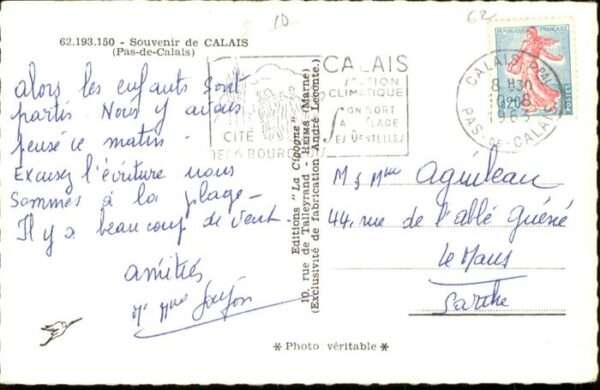 10
62
62.193.150 - Souvenir de CALAIS
(Pas-de-Calais)
alors les enfants sont
partis. Nous y avons
pensé ce matin.
Excusez l'écriture nous
sommes à la plage -
Il y a beaucoup de vent.
amitiés
Mr Mme Goujon
CITÉ
DES 6 BOURGEOIS
CALAIS
STATION
CLIMATIQUE
SON PORT
SA PLAGE
SES DENTELLES
CALAIS
8 H30
1963
PAS-DE-CALAIS
Editions "La Cigogne"
10, rue de Talleyrand - REIMS (Marne)
(Exclusivité de fabrication André Leconte.)
M & Mme Aguileau
44, rue de l'abbé Guéné
Le Mans
Sarthe
* Photo véritable *